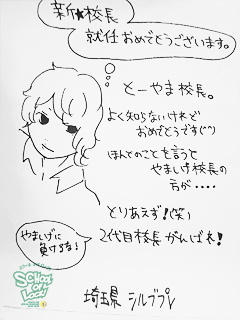 新★校長
就任おめでとうございます。
とーやま校長。
よく知らないけれど
おめでとうです(^^)
ほんとのことを言うと
やましげ校長の
方が・・・・
とりあえず!(笑)
2代目校長がんばれ!
やましげに
負けるな!
SCHOOL
OF
LOCK!
埼玉県 シルブプレ